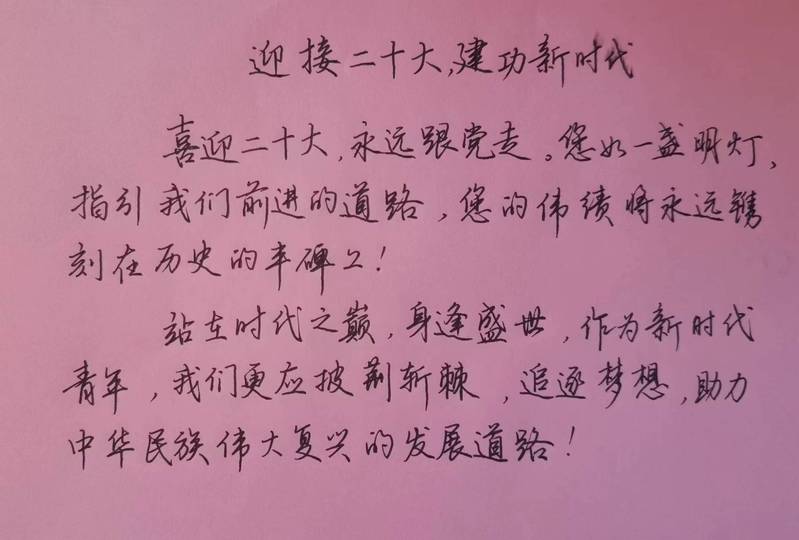 迎接二十大,建功新时代
喜迎二十大,永远跟党走。您如一盏明灯,
指引我们前进的道路,您的伟绩将永远镌
刻在历史的丰碑上!
站在时代之巅,身逢盛世,作为新时代
青年,我们更应披荆斩棘,追逐梦想,助力
中华民族伟大复兴的发展道路!